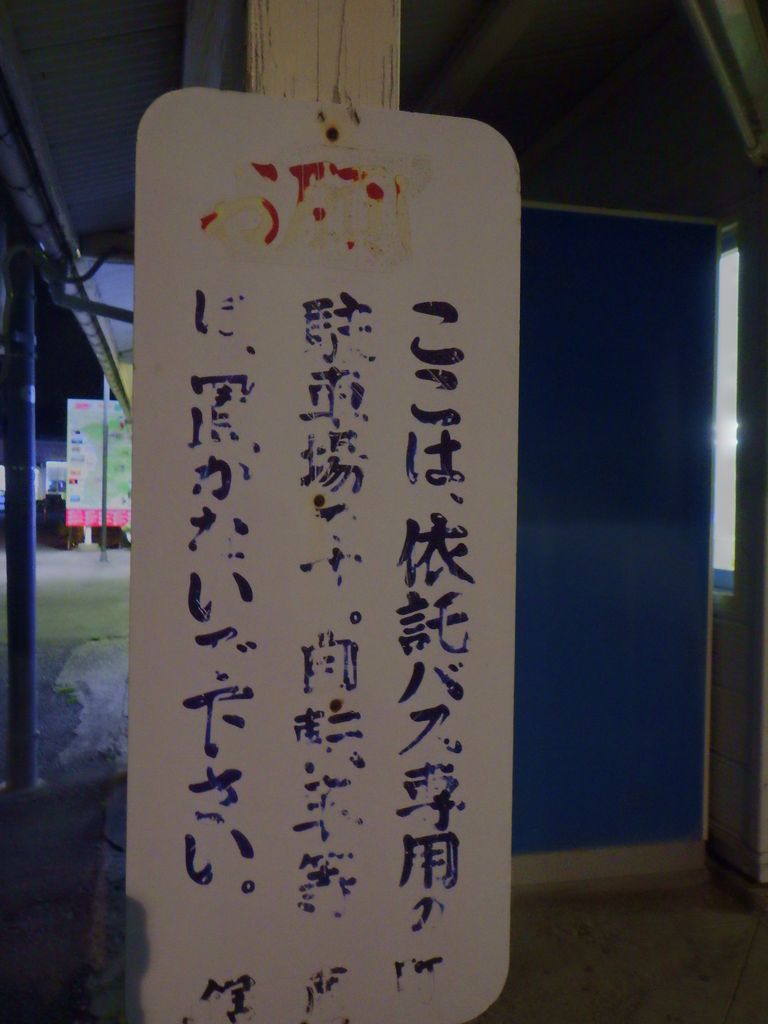 ここは、依託バス専用の
駐車場です。自転車等
は、置かないで下さい。